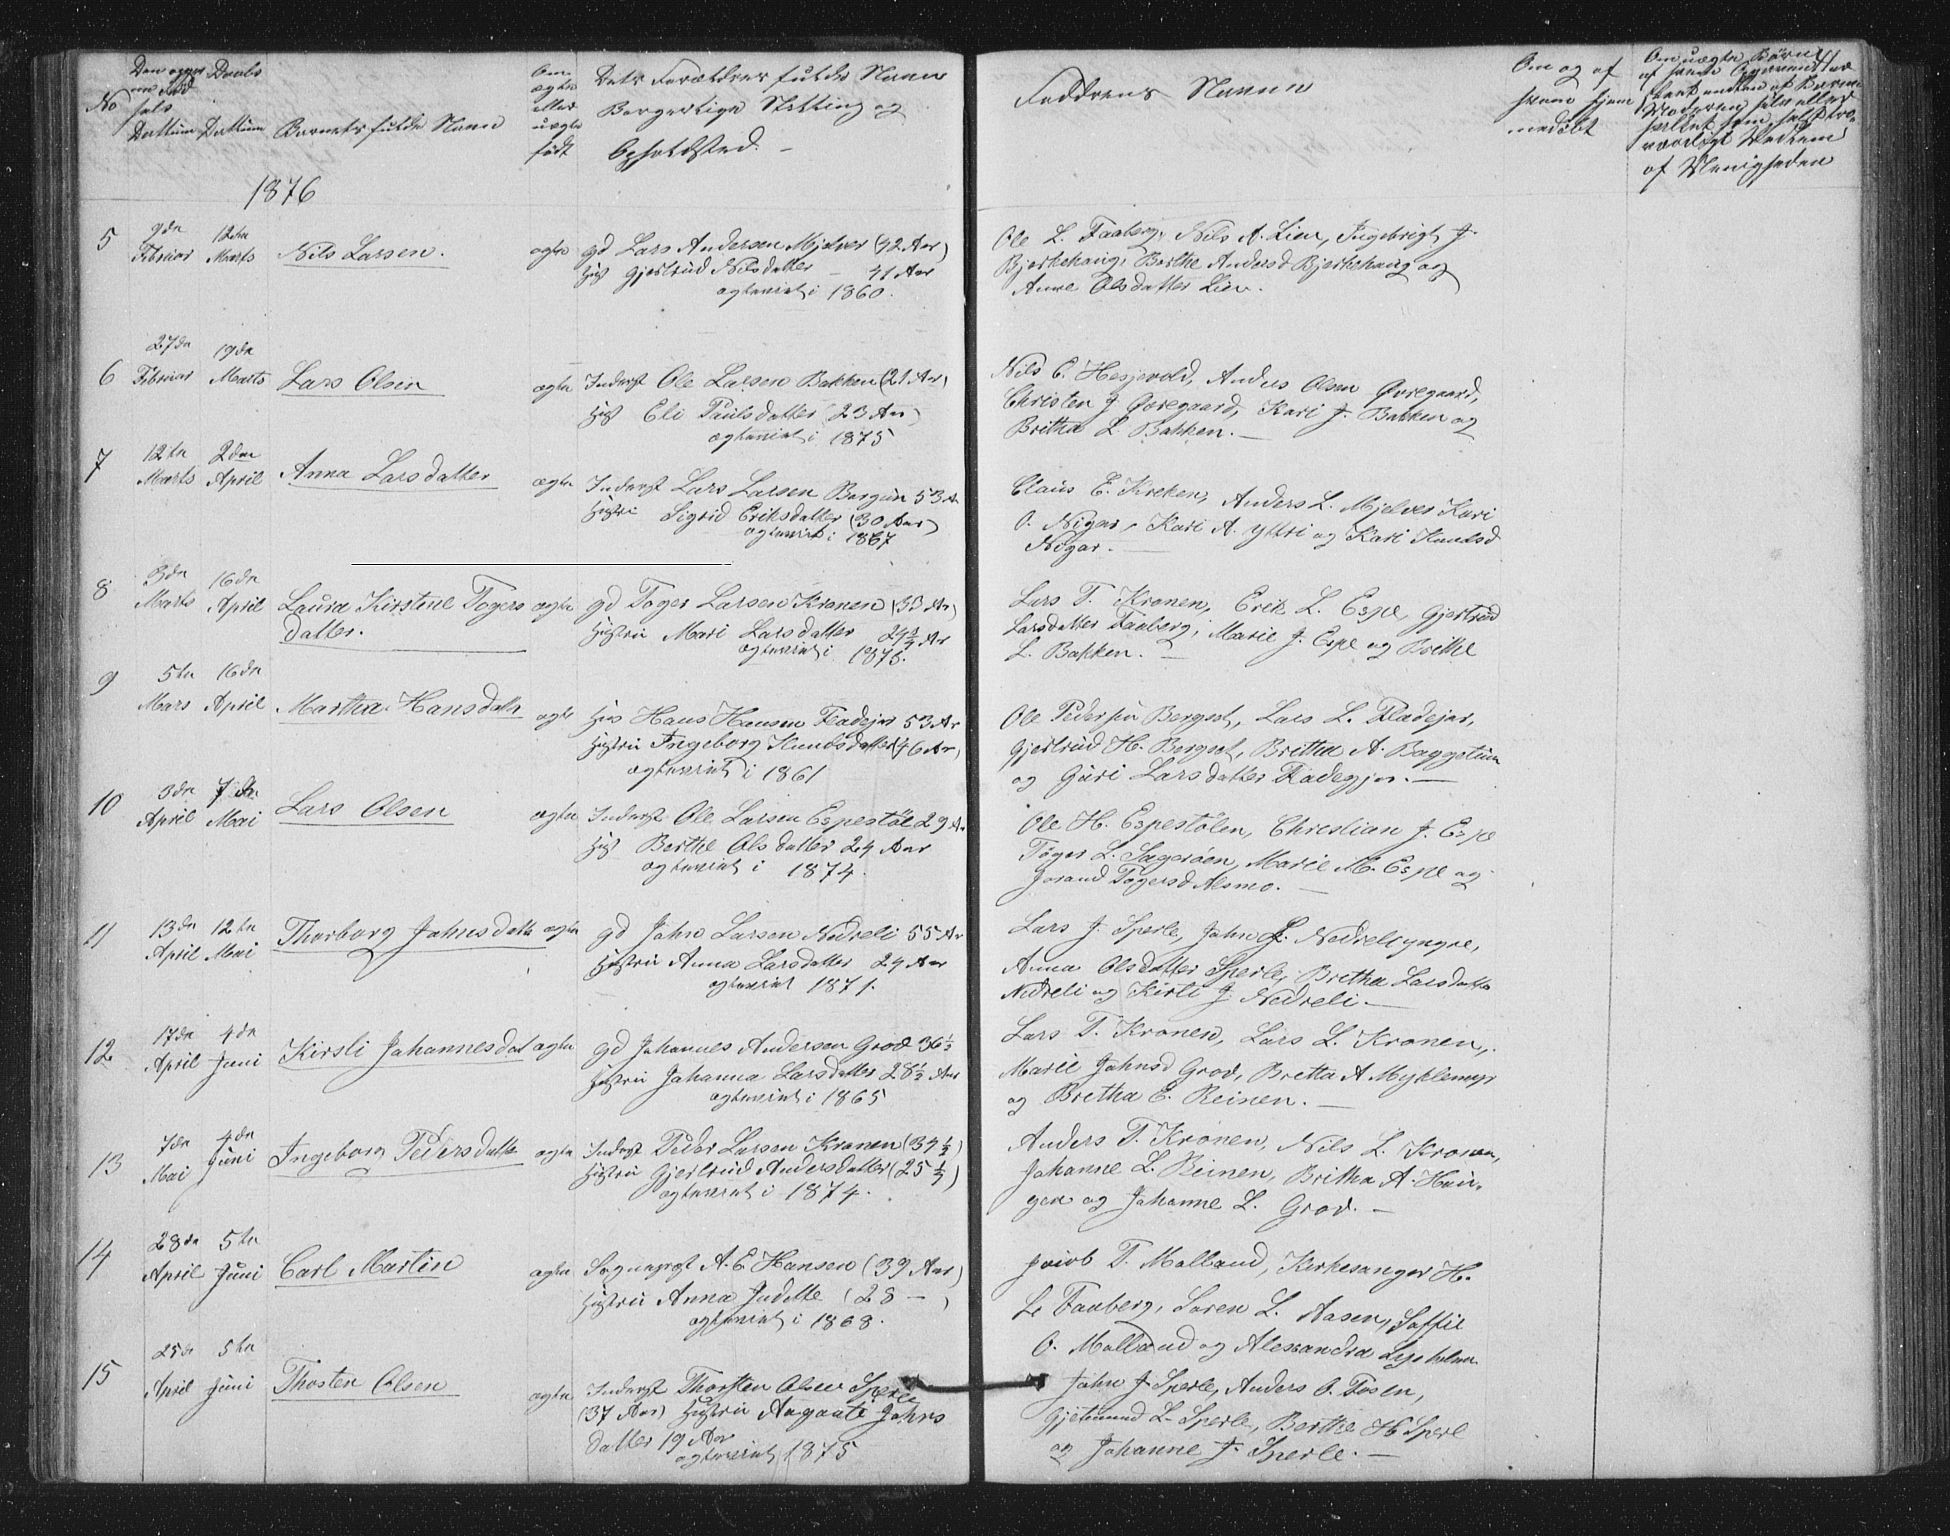 No
Dattum Dattum Barnets fulde Navn
Om ægte
uægte
født
Dets Forældres fulde Navn
Borgerlige Stilling og
Opholdsted. -
Faddrens Navn
Om og af
hvem hjem
medøbt
af Menigheden
1876
5 9de Februar 12te Marts Nils Larsen. ægte gd Lars Andersen Mjelver (42 Aar)
Gjertrud Nilsdatter - 41 Aar
ægteviet i 1860.
Ole L. Faaberg, Nils A. Lien, Ingebrigt J.
Bjerkehaug, Berthe Andersd Bjerkehaug og
Anne Olsdatter Lien.
6 27de Februar 19de Marts Lars Olsen ægte Inderst Ole Larsen Bakken (21 Aar)
Eli Paulsdatter (23 Aar)
ægteviet i 1875
Nils C. Hesjevold, Anders Olsen Øvregaard,
Christen J Øvregaard, Kari J. Bakken og
Britha L Bakken. -
7 12te Marts 2den April Anna Larsdatter ægte Inderst Lars Larsen Bergum 53 A
Sigrid Eriksdatter (30 Aar)
ægteviet i 1867
Claus E. Kreken, Anders L. Mjelver Kari
O. Nigar, Kari A. Yttri og Kari Knudsd
Nigar. -
8 3de Marts 16de April Laura Kirstine Togers ægte gd Toger Larsen Kronen (33 Ar)
datter. Hustru Mari Larsdatter 24½ Ar
ægteviet i 1875.
Lars T. Kronen, Erik L. Espe, Gjertrud
Larsdatter Faaberg, Marie J. Espe og Brithe
L. Bakken. -
9 5te Mars 16de April Martha Hansdatter ægte Hans Hansen Fladejar 53 Ar
Hustru Ingeborg Knudsdatter (46 Ar)
ægteviet i 1861
Ole Pedersen Bergset, Lars L. Fladejar,
Gjertrud H. Bergset, Britha A. Baggetun
og Guri Larsdatter Fladegjer. -
10 3de April 7de Mai Lars Olsen ægte Inderst Ole Larsen Espestøl 29 A
Berthe Olsdatter 24 Aar
ægteviet i 1874.
Ole H. Espestølen, Christian J. Espe
Tøger L. Sagerøen, Marie M. Espe og
Jorand Tøgersd Alsmo. -
11 13de April 12te Mai Thorborg Jahnsdatter ægte gd Jahn Larsen Nedreli 55 Ar
Hustru Anna Larsdatter 24 Aar
ægteviet 1871.
Lars J. Sperle, Jahn L. Nedreli yngre,
Anna Olsdatter Sperle, Bretha Larsdatter
Nedreli og Kirsti J Nedreli. -
12 17de April 4de Juni Kirsti Johannesdat ægte gd Johannes Andersen Grov 36½
Hustru Johanna Larsdatter 28½ Aar
ægteviet i 1865
Lars T. Kronen, Lars L. Kronen,
Marie Jahnsd Grov, Bretta A Myklemyr
og Bretha E. Reinen. -
13 7de Mai 4de Juni Ingeborg Pedersdatter ægte Inderst Peder Larsen Kronen (34½)
Hustru Gjertrud Andersdatter (25½)
ægteviet i 1874.
Anders T. Kronen, Nils L. Kronen,
Johanne L. Reinen, Britha A. Hau-
gen og Johanne L. Grov. -
14 28de April 5te Juni Carl Martin ægte Sogneprest A. E Hansen (39 Aar)
Hustru Anna Judithe (28 - )
ægteviet i 1868.
Jacob T. Molland, Kirkesanger H.
L. Faaberg, Søren L. Aasen, Soffie
O. Molland og Alexandra
15 25de April 5te Juni Thosten Olsen ægte Inderst Thorsten Olsen Sperle
(37 Aar) Hustru Aagaate Jahns
datter 19 Aar
ægteviet 1875
Jahn J Sperle, Anders O. Fosen,
Gjertrud L Sperle, Berthe H Sperl
og Johanne J. Sperle. -